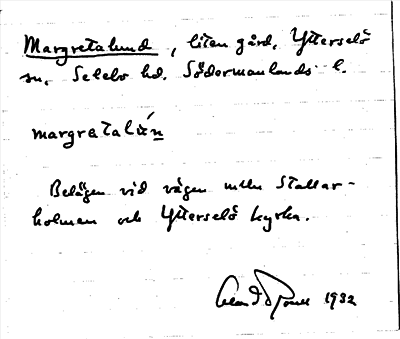 Margretalund, liten gård, Ytterselö
sn, Selebo hd. Södermanlands l.
margretalún
Belägen vid vägen mellan Stallar-
holmen och Ytterselö kyrka.
1932